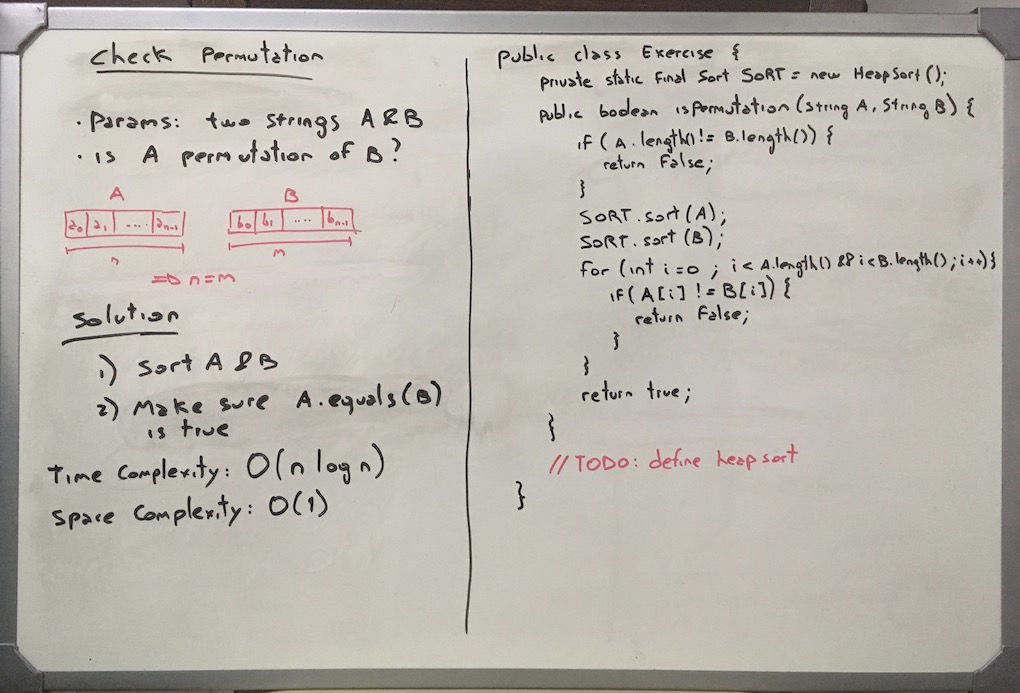 Check Permutation
• Params: two strings A & B
• is A permutation of B?
A B
a0 a1 .... an-1 b0 b1 .... bn-1
n m
=> n=m
Solution
1) Sort A & B
2) Make sure A.equals(B)
is true
Time Complexity: O(n log n)
Space Complexity: O(1)
public class Exercise {
private static final Sort SORT = new HeapSort();
public boolean isPermutation(String A, String B) {
if (A.length() != B.length()) {
return False;
}
SORT.sort(A);
SORT.sort(B);
for (int i=0 ; i < A.length() && i<B.length(); i++){
if(A[i] != B[i]) {
return False;
}
}
return true;
}
// TODO: define heap sort
}